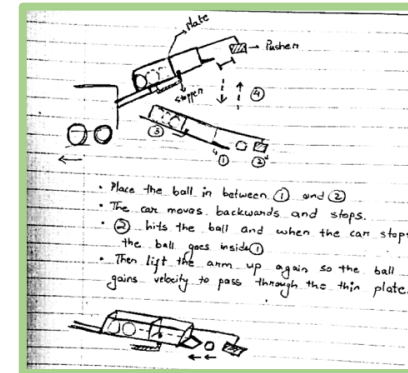 plate
Pusher
stopper
④
③
①
②
• Place the ball in between ① and ②
• The car moves backwards and stops.
• ② hits the ball and when the car stops
the ball goes inside ①
• Then lift the arm up again so the ball
gains velocity to pass through the thin plate.